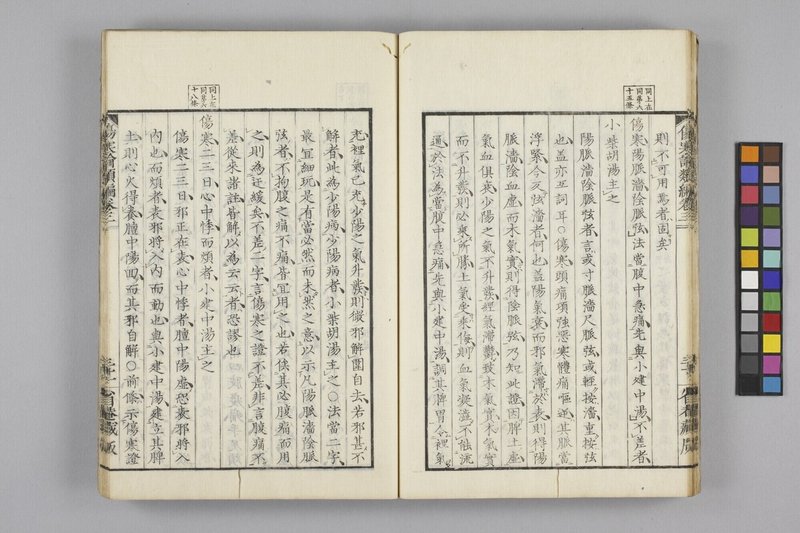 則不可用焉者固矣
傷寒陽脈濇陰脈弦法當腹中急痛先與小建中湯不差者
小柴胡湯主之
陽脈濇陰脈弦者言或寸脈濇尺脈弦或輕按濇重按弦
也蓋亦互詞耳○傷寒頭痛項強惡寒體痛嘔逆其脈當
浮緊今反弦濇者何也蓋陽氣衰而邪氣滯於表則得陽
脈濇陰血虛而木氣實則得陰脈弦乃知此證因脾土虛
氣血俱衰少陽之氣不升發經氣滯鬱致木氣實木氣實
而不升發則必乘所勝土氣受乘侮則血氣凝澁不能流
通於法為當腹中急痛先與小建中湯調其脾胃令裡氣
充裡氣已充少陽之氣升發則微邪解圍自去若邪甚不
解者此為少陽病少陽病者小柴胡湯主之○法當二字
最宜細玩是有當必然而未然之意以示凡陽脈濇陰脈
弦者不拘腹之痛不痛皆宜用之也若俟其必腹痛而用
之則為迂緩矣不差二字言傷寒之證不差非言腹痛不
差從來諸註皆解以為云云者恐謬也
傷寒二三日心中悸而煩者小建中湯主之
傷寒二三日邪正在表心中悸者膻中陽虛恐表邪將入
內也而煩者表邪將入內而動也與小建中湯建立其脾
土則心火得養膻中陽回而其邪自解○前條示傷寒證
同上在
同第六
十五條
同上在
同第六
十八條
傷寒論類編卷三